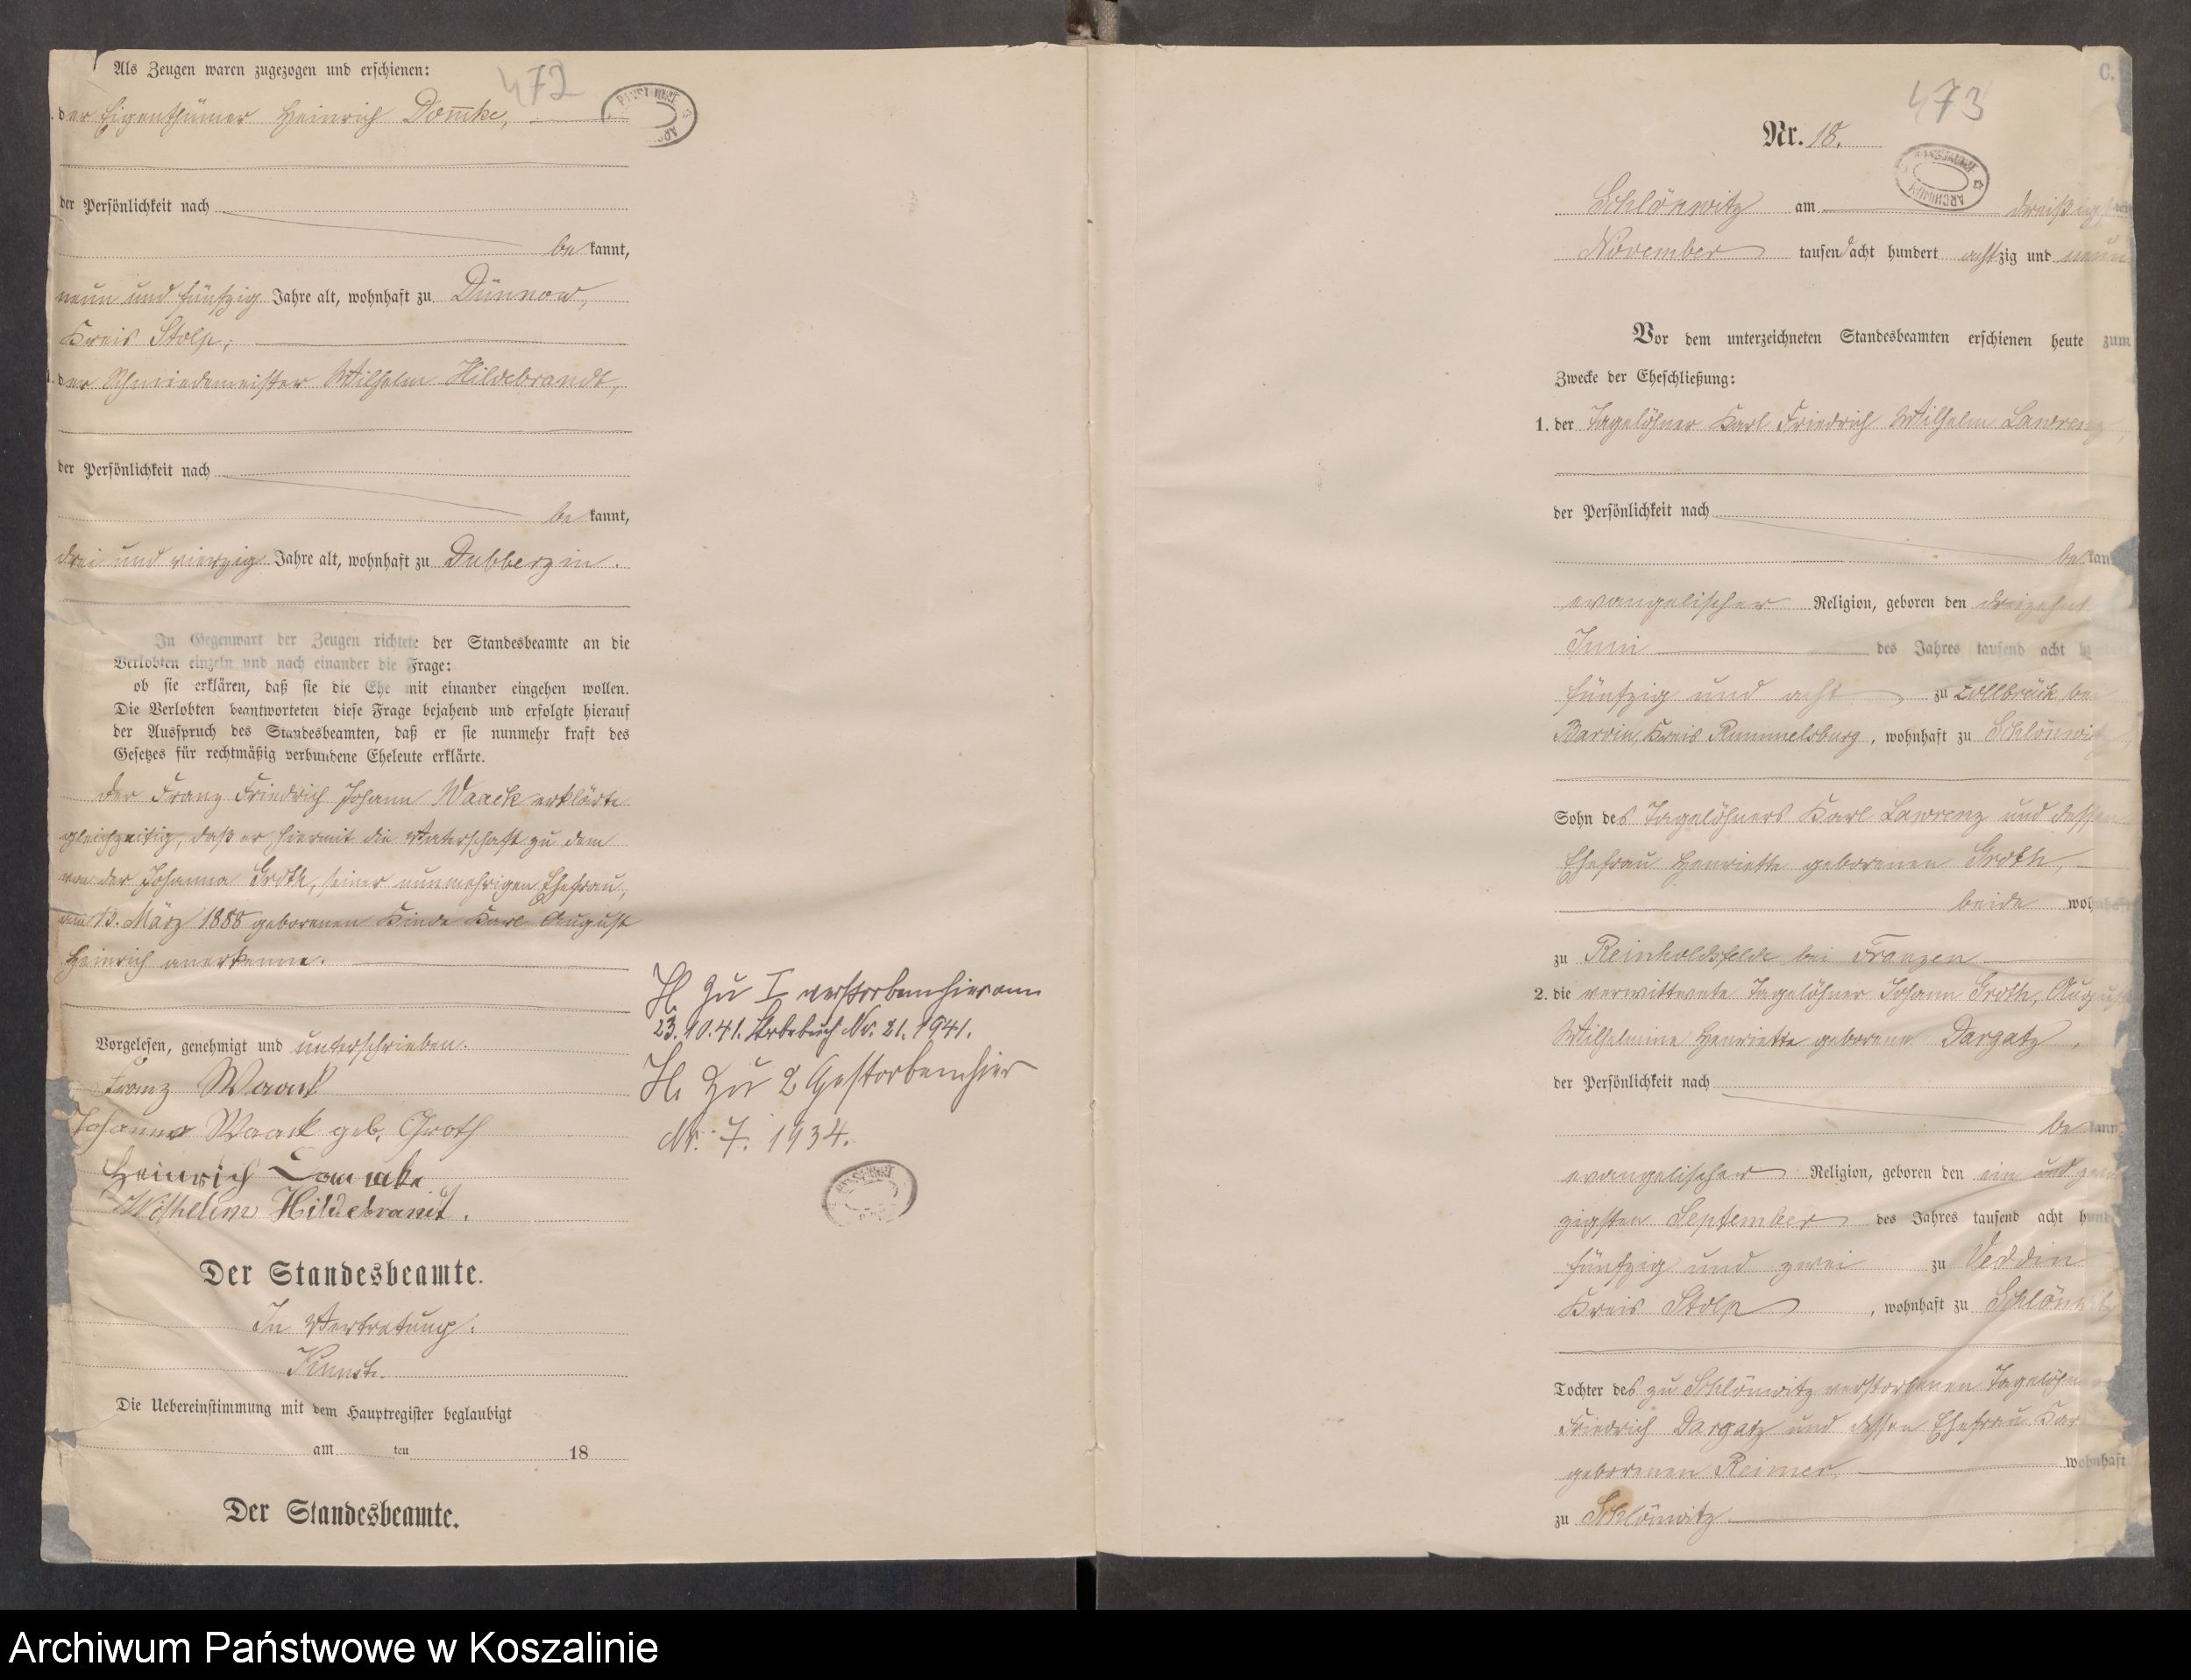 Als Zeugen waren zugezogen und erschienen:
472
der Eigenthümer Heinrich Domke,
der Persönlichkeit nach
bekannt,
neun und fünfzig Jahre alt, wohnhaft zu Dünnow,
Kreis Stolp;
der Schmiedemeister Wilhelm Hildebrandt,
der Persönlichkeit nach
bekannt,
drei und vierzig Jahre alt, wohnhaft zu Dubberzin.
In Gegenwart der Zeugen richtete der Standesbeamte an die
Verlobten einzeln und nach einander die Frage:
ob sie erklären, daß sie die Ehe mit einander eingehen wollen.
Die Verlobten beantworteten diese Frage bejahend und erfolgte hierauf
der Ausspruch des Standesbeamten, daß er sie nunmehr kraft des
Gesetzes für rechtmäßig verbundene Eheleute erklärte.
Der Franz Friedrich Johann Waack erklärte
gleichzeitig, daß er hiermit die Vaterschaft zu dem
von der Johanna Groth, seiner nunmehrigen Ehefrau,
am 13. März 1888 geborenen Kinde Karl August
Heinrich anerkenne.
Vorgelesen, genehmigt und unterschrieben.
Franz Waack
Johanna Waack geb. Groth
Heinrich Domke
Wilhelm Hildebrandt.
Der Standesbeamte.
In Vertretung:
Die Uebereinstimmung mit dem Hauptregister beglaubigt
am ten 18
Der Standesbeamte.
H. zu I verstorben hier am
23.10.41. Sterbebuch Nr. 21. 1941.
H. zu 2 Gestorben hier
Nr. 7. 1934.
C.
473
Nr. 18.
ARCHIWUM
Schlönwitz am dreißigsten
November tausend acht hundert achtzig und neun
Vor dem unterzeichneten Standesbeamten erschienen heute zum
Zwecke der Eheschließung:
1. der Tagelöhner Karl Friedrich Wilhelm Lawrenz,
der Persönlichkeit nach
bekan
evangelischer Religion, geboren den dreizehnt
Juni des Jahres tausend acht hundert
fünfzig und acht zu Zollbrück bei
Barvin, Kreis Rummelsburg, wohnhaft zu Schlönwitz,
Sohn des Tagelöhners Karl Lawrenz und dessen
Ehefrau Henriette geborenen Groth,
beide wohnhaft
zu Reinholdsfelde bei Franzen
2. die verwittwete Tagelöhner Johann Groth, August
Wilhelmine Henriette geborene Dargatz,
der Persönlichkeit nach
bekann
evangelischer Religion, geboren den ein und zwan
zigsten September des Jahres tausend acht hund
fünfzig und zwei zu Veddin
Kreis Stolp, wohnhaft zu Schlönwitz
Tochter des zu Schlönwitz verstorbenen Tagelöhn
Friedrich Dargatz und dessen Ehefrau Kar
geborenen Reimer, wohnhaft
zu Schlönwitz
Archiwum Państwowe w Koszalinie